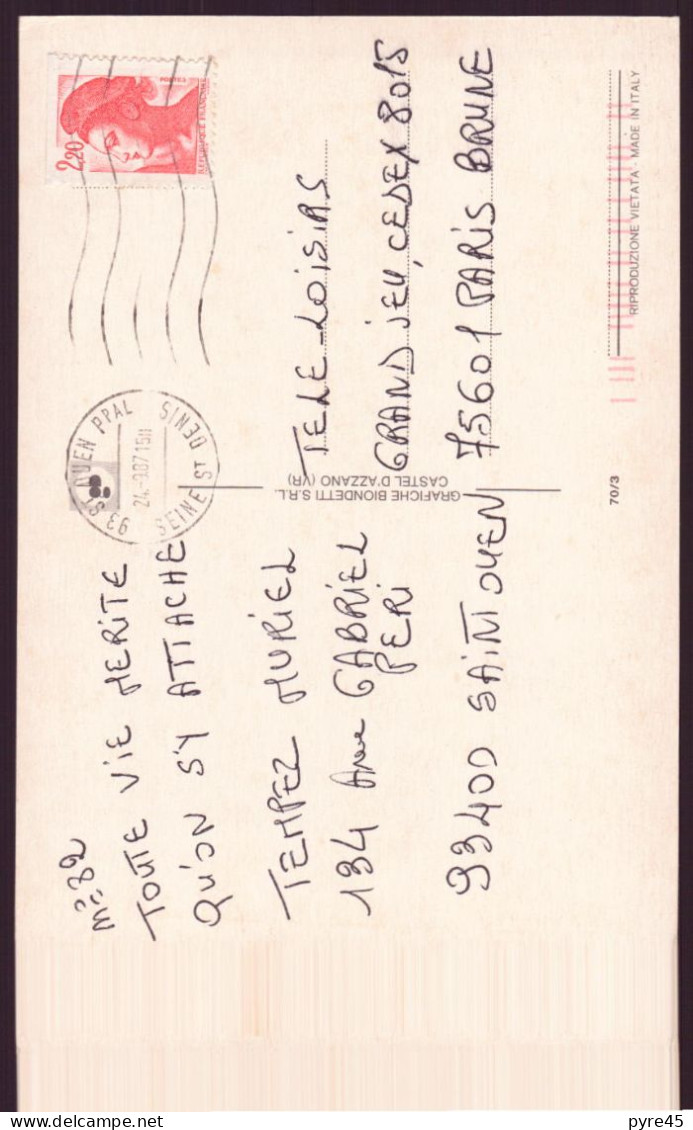 n=32
TOUTE VIE MERITE
QU'ON S'Y ATTACHE
TEMPEZ MURIEL
134 Ave GABRIEL
PERI
93400 SAINT OUEN
2,20
REPUBLIQUE FRANÇAISE
93 ST OUEN PPAL
24.-9.87 15H
SEINE ST DENIS
GRAFICHE BIONDETTI S.R.L.
CASTEL D'AZZANO (VR)
TELE-LOISIRS
GRAND JEU, CEDEX 8015
75601 PARIS BRUNE
70/3
RIPRODUZIONE VIETATA - MADE IN ITALY
pyre45